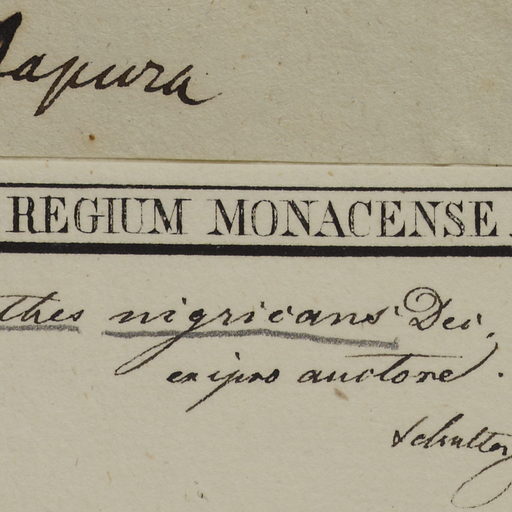 Japura
REGIUM MONACENSE.
thes nigricans Dec.
ex ipso auctore.